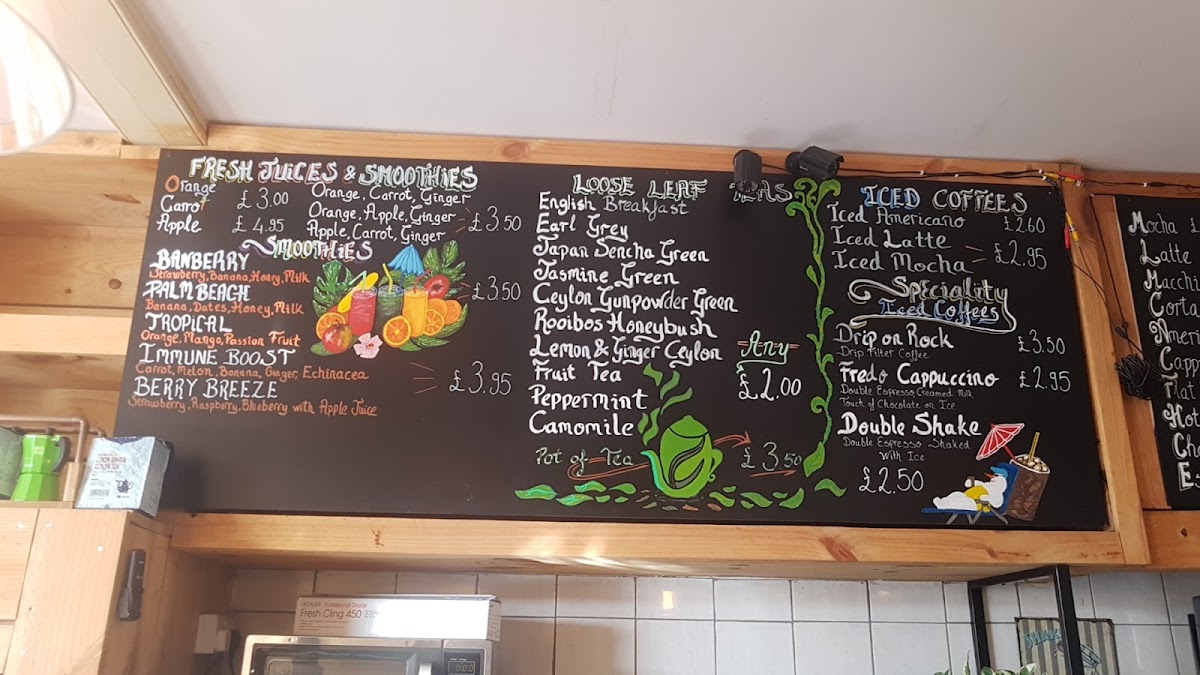 FRESH JUICES & SMOOTHIES
Orange
Carrot
Apple
£ 3.00
£ 4.95
Orange, Carrot, Ginger
Orange, Apple, Ginger
Apple, Carrot, Ginger
£ 3.50
SMOOTHIES
BANBERRY
Strawberry, Banana, Honey, Milk
PALM BEACH
Banana, Dates, Honey, Milk
£3.50
TROPICAL
Orange, Mango, Passion Fruit
IMMUNE BOOST
Carrot, Melon, Banana, Ginger, Echinacea
BERRY BREEZE
Strawberry, Raspberry, Blueberry with Apple Juice
£3.95
LOOSE LEAF TEAS
English Breakfast
Earl Grey
Japan Sencha Green
Jasmine Green
Ceylon Gunpowder Green
Rooibos Honeybush
Lemon & Ginger Ceylon
Fruit Tea
Peppermint
Camomile
Any
£2.00
Pot of Tea £3.50
ICED COFFEES
Iced Americano £2.60
Iced Latte
Iced Mocha
£2.95
Speciality
Iced Coffees
Drip on Rock £3.50
Drip Filter Coffee
Fredo Cappuccino £2.95
Double Espresso, Creamed Milk
Touch of Chocolate on Ice
Double Shake
Double Espresso Shaked
With Ice
£2.50
Mocha £
Latte
Macchi
Corta
Ameri
Capp
Flat
Hot
Cho
Es
Professional Grade
Fresh Cling 450